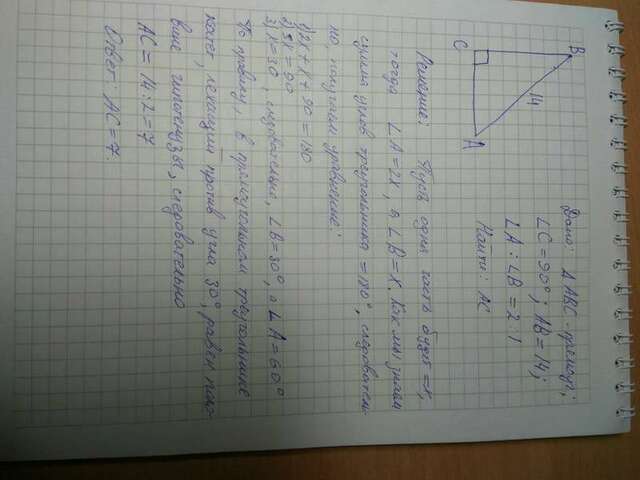 C
B
A
14
Дано: Δ ABC - прямоуг;
∠C = 90°; AB = 14;
∠A : ∠B = 2 : 1
Найти: AC
Решение: Пусть одна часть будет = x,
тогда ∠A = 2x, а ∠B = x. Как мы знаем
сумма углов треугольника = 180°, следователь-
но, получим уравнение:
1) 2x + x + 90 = 180
2) 3x = 90
3) x = 30, следовательно, ∠B = 30°, а ∠A = 60°
По правилу, в прямоугольном треугольнике
катет, лежащий против угла 30°, равен поло-
вине гипотенузы, следовательно
AC = 14 : 2 = 7
Ответ: AC = 7.